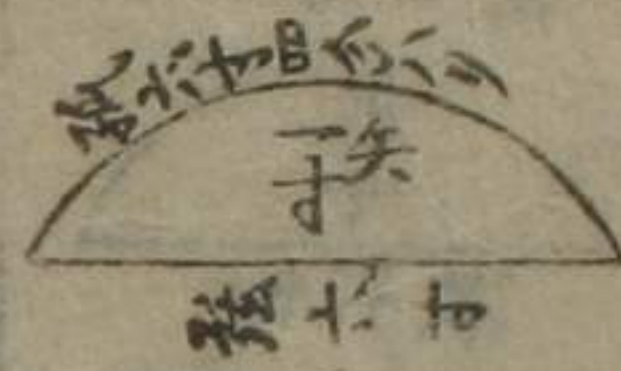 弧六寸四分八リ
矢
一寸
弦六寸